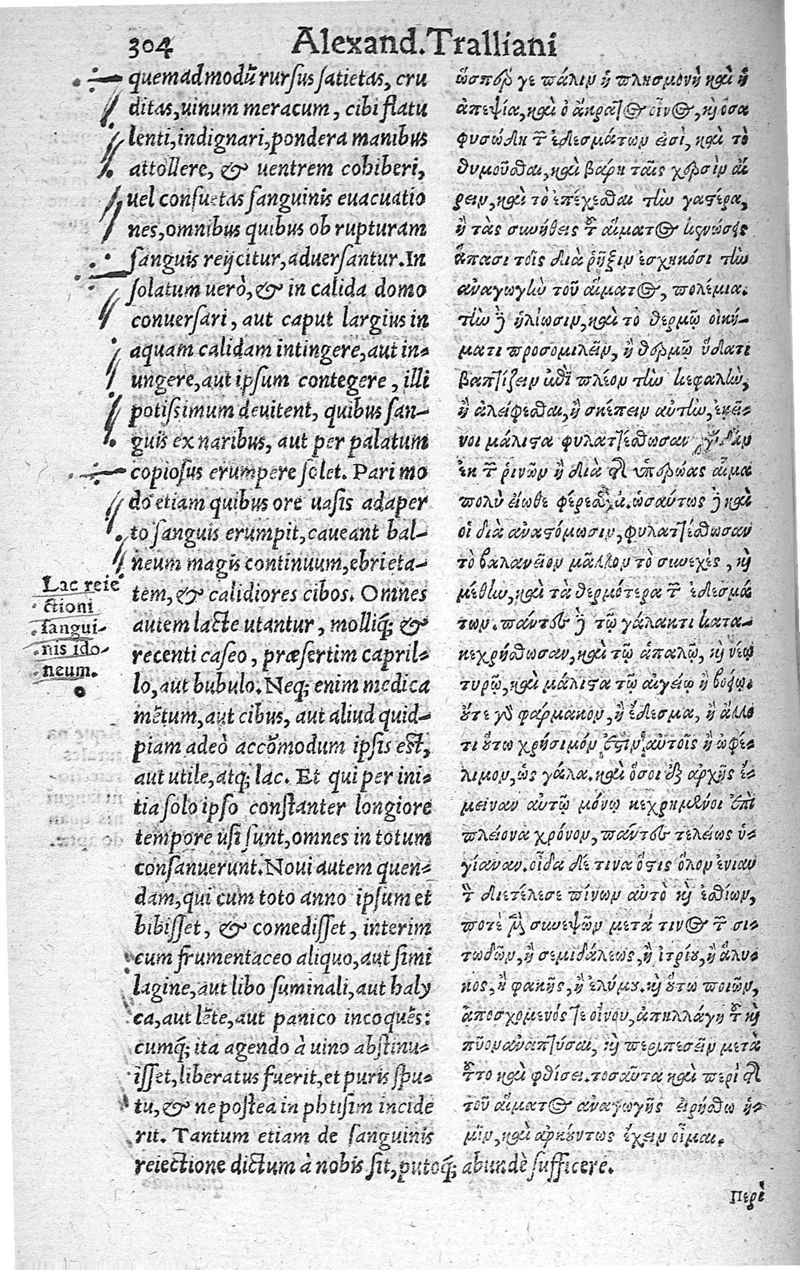 304 Alexand. Tralliani
quemadmodũ rursus satietas, cru
ditas, uinum meracum, cibi flatu
lenti, indignari, pondera manibus
attollere, & uentrem cohiberi,
uel consuetas sanguinis euacuatio
nes, omnibus quibus ob rupturam
sanguis reijcitur, aduersantur. In
solatum uerò, & in calida domo
conuersari, aut caput largius in
aquam calidam intingere, aut in-
ungere, aut ipsum contegere, illi
potissimum deuitent, quibus san-
guis ex naribus, aut per palatum
copiosus erumpere solet. Pari mo
do etiam quibus ore uasis adaper
to sanguis erumpit, caueant bal-
neum magis continuum, ebrieta-
tem, & calidiores cibos. Omnes
autem lacte utantur, molliq; &
recenti caseo, præsertim capril-
lo, aut bubulo. Neq; enim medica
mẽtum, aut cibus, aut aliud quid-
piam adeò accõmodum ipsis est,
aut utile, atq; lac. Et qui per ini-
tia solo ipso constanter longiore
tempore usi sunt, omnes in totum
consanuerunt. Noui autem quen-
dam, qui cum toto anno ipsum et
bibisset, & comedisset, interim
cum frumentaceo aliquo, aut simi
lagine, aut libo suminali, aut haly
ca, aut lẽte, aut panico incoquẽs:
cumq; ita agendo à uino abstinu-
isset, liberatus fuerit, et puris spu-
tu, & ne postea in phtisim incide
rit. Tantum etiam de sanguinis
reiectione dictum à nobis sit, putoq; abundè sufficere.
Lac reie
ctioni
sangui-
nis ido-
neum.
ὥσπερ γε πάλιν ἡ πλησμονὴ καὶ ἡ
ἀπεψία, καὶ ὁ ἄκρατος οἶνος, κ̀ ὅσα
φυσώδη τ̃ ἐδεσμάτων εἰσὶ, καὶ τὸ
θυμοῦσθαι, καὶ βάρη ταῖς χερσὶν αἴ
ρειν, καὶ τὸ ἐπέχεσθαι τὴν γαστέρα,
ἢ τὰς συνήθεις τ̃ αἵματος κενώσεις
ἅπασι τοῖς διὰ ῥῆξιν ἐσχηκόσι τὴν
ἀναγωγὴν τοῦ αἵματος, πολέμια.
τὴν δὲ ἡλίωσιν, καὶ τὸ θερμῷ οἰκή-
ματι προσομιλεῖν, ἢ θερμῷ ὕδατι
βαπτίζειν ἐπὶ πλέον τὴν κεφαλὴν,
ἢ ἀλείφεσθαι, ἢ σκέπειν αὐτὴν, ἐκεῖ-
νοι μάλιστα φυλαττέσθωσαν
ἐκ τ̃ ῥινῶν ἢ διὰ τ̃ ὑπερώας αἷμα
πολὺ εἴωθε φέρεσθαι. ὡσαύτως δὲ καὶ
οἱ διὰ ἀναστόμωσιν, φυλαττέσθωσαν
τὸ βαλανεῖον μᾶλλον τὸ συνεχὲς, κ̀
μέθην, καὶ τὰ θερμότερα τ̃ ἐδεσμά
των. πάντες δὲ τῷ γάλακτι κατα-
κεχρήσθωσαν, καὶ τῷ ἁπαλῷ, κ̀ νέῳ
τυρῷ, καὶ μάλιστα τῷ αἰγείῳ ἢ βοείῳ.
οὔτε γὸ φάρμακον, ἢ ἔδεσμα, ἢ ἄλλο
τι οὕτω χρήσιμόν ἐστιν αὐτοῖς ἢ ὠφέ-
λιμον, ὡς γάλα. καὶ ὅσοι ἐξ ἀρχῆς ἔ-
μειναν αὐτῷ μόνῳ κεχρημένοι ἐπὶ
πλείονα χρόνον, πάντες τελέως ὑ-
γίαναν. οἶδα δέ τινα ὅστις ὅλον ἐνιαυ
τ̀ διετέλεσε πίνων αὐτὸ κ̀ ἐσθίων,
ποτὲ μὲν συνεψῶν μετά τινος τ̃ σι-
τωδῶν, ἢ σεμιδάλεως, ἢ ἰτρίου, ἢ ἅλυ-
κος, ἢ φακῆς, ἢ ἐλύμου. κ̀ οὕτω ποιῶν,
ἀποσχομενός τε οἴνου, ἀπηλλάγη τ̃ κ̀
πῦον ἀναπτύσαι, κ̀ περιπεσεῖν μετὰ
τοῦτο καὶ φθίσει. τοσαῦτα καὶ περὶ τ̃
τοῦ αἵματος ἀναγωγῆς εἰρήσθω ἡ-
μῖν, καὶ ἀρκούντως ἔχειν οἶμαι.
Περὶ